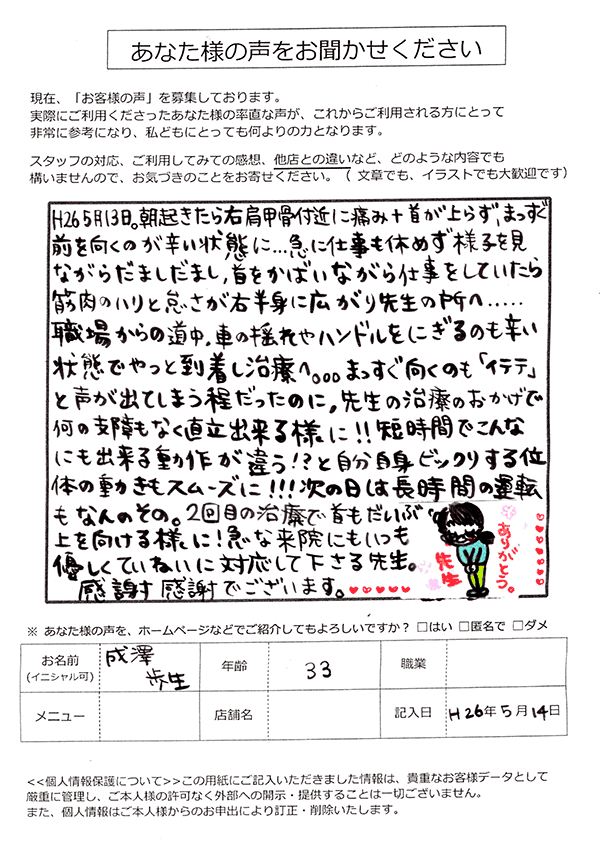 あなた様の声をお聞かせください
現在、「お客様の声」を募集しております。
実際にご利用くださったあなた様の率直な声が、これからご利用される方にとって
非常に参考になり、私どもにとっても何よりの力となります。
スタッフの対応、ご利用してみての感想、他店との違いなど、どのような内容でも
構いませんので、お気づきのことをお寄せください。（ 文章でも、イラストでも大歓迎です）
H26 5月13日。朝起きたら右肩甲骨付近に痛み＋首が上らず、まっすぐ
前を向くのが辛い状態に…急に仕事も休めず様子を見
ながらだましだまし、首をかばいながら仕事をしていたら
筋肉のハリと怠さが右半身に広がり先生の所へ……
職場からの道中、車の揺れやハンドルをにぎるのも辛い
状態でやっと到着し治療へ。。。まっすぐ向くのも「イテテ」
と声が出てしまう程だったのに、先生の治療のおかげで
何の支障もなく直立出来る様に!!短時間でこんな
にも出来る動作が違う!?と自分自身ビックリする位
体の動きもスムーズに!!!次の日は長時間の運転
もなんのその。2回目の治療で首もだいぶ
上を向ける様に!急な来院にもいつも
優しくていねいに対応して下さる先生。
感謝す感謝でございます。
ありがとう。
先生
※ あなた様の声を、ホームページなどでご紹介してもよろしいですか？ □はい □匿名で □ダメ
お名前 成澤 歩生 年齢 33 職業
(イニシャル可)
メニュー 店舗名 記入日 H26年5月14日
<<個人情報保護について>>この用紙にご記入いただきました情報は、貴重なお客様データとして
厳重に管理し、ご本人様の許可なく外部への開示・提供することは一切ございません。
また、個人情報はご本人様からのお申出により訂正・削除いたします。